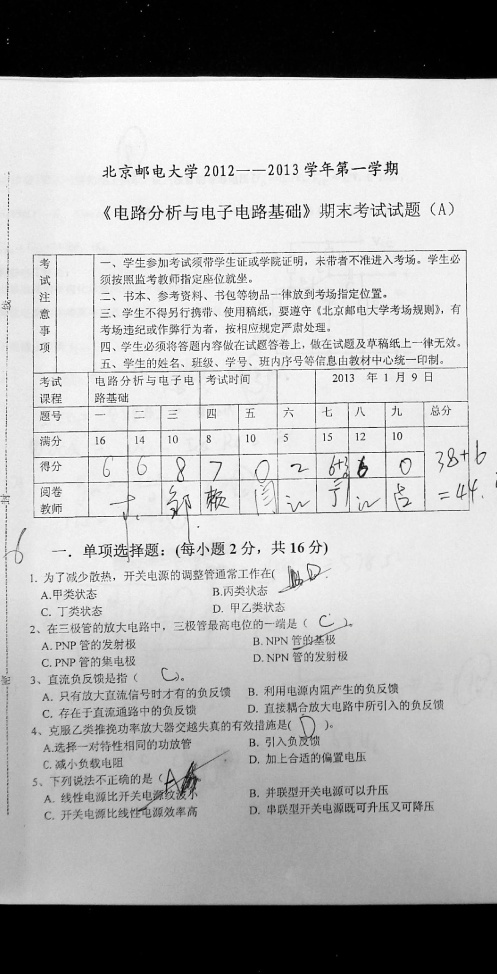 北京邮电大学 2012——2013 学年第一学期
《电路分析与电子电路基础》期末考试试题（A）
考试注意事项
一、学生参加考试须带学生证或学院证明，未带者不准进入考场。学生必
须按照监考教师指定座位就坐。
二、书本、参考资料、书包等物品一律放到考场指定位置。
三、学生不得另行携带、使用稿纸，要遵守《北京邮电大学考场规则》，有
考场违纪或作弊行为者，按相应规定严肃处理。
四、学生必须将答题内容做在试题答卷上，做在试题及草稿纸上一律无效。
五、学生的姓名、班级、学号、班内序号等信息由教材中心统一印制。
考试课程 电路分析与电子电路基础 考试时间 2013 年 1 月 9 日
题号 一 二 三 四 五 六 七 八 九 总分
满分 16 14 10 8 10 5 15 12 10
得分 6 6 8 7 0 2 6+3 6 0 38+6
阅卷教师 =44.
6
一．单项选择题：(每小题 2 分，共 16 分)
1. 为了减少散热，开关电源的调整管通常工作在( D
A.甲类状态 B.丙类状态
C. 丁类状态 D. 甲乙类状态
2、在三极管的放大电路中，三极管最高电位的一端是（ C ）。
A. PNP 管的发射极 B. NPN 管的基极
C. PNP 管的集电极 D. NPN 管的发射极
3、直流负反馈是指（ C ）。
A. 只有放大直流信号时才有的负反馈 B. 利用电源内阻产生的负反馈
C. 存在于直流通路中的负反馈 D. 直接耦合放大电路中所引入的负反馈
4、克服乙类推挽功率放大器交越失真的有效措施是( D )。
A.选择一对特性相同的功放管 B. 引入负反馈
C. 减小负载电阻 D. 加上合适的偏置电压
5、下列说法不正确的是（ A
A. 线性电源比开关电源纹波小 B. 并联型开关电源可以升压
C. 开关电源比线性电源效率高 D. 串联型开关电源既可升压又可降压